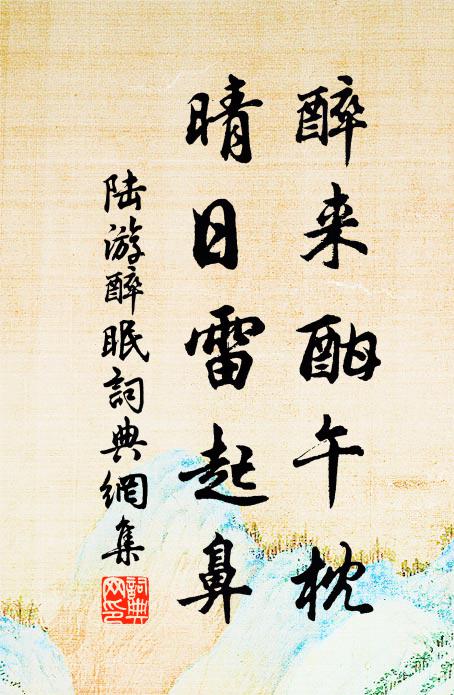 醉来酣午枕
晴日雷起鼻
陆游醉眠詞典網集
詞典网印